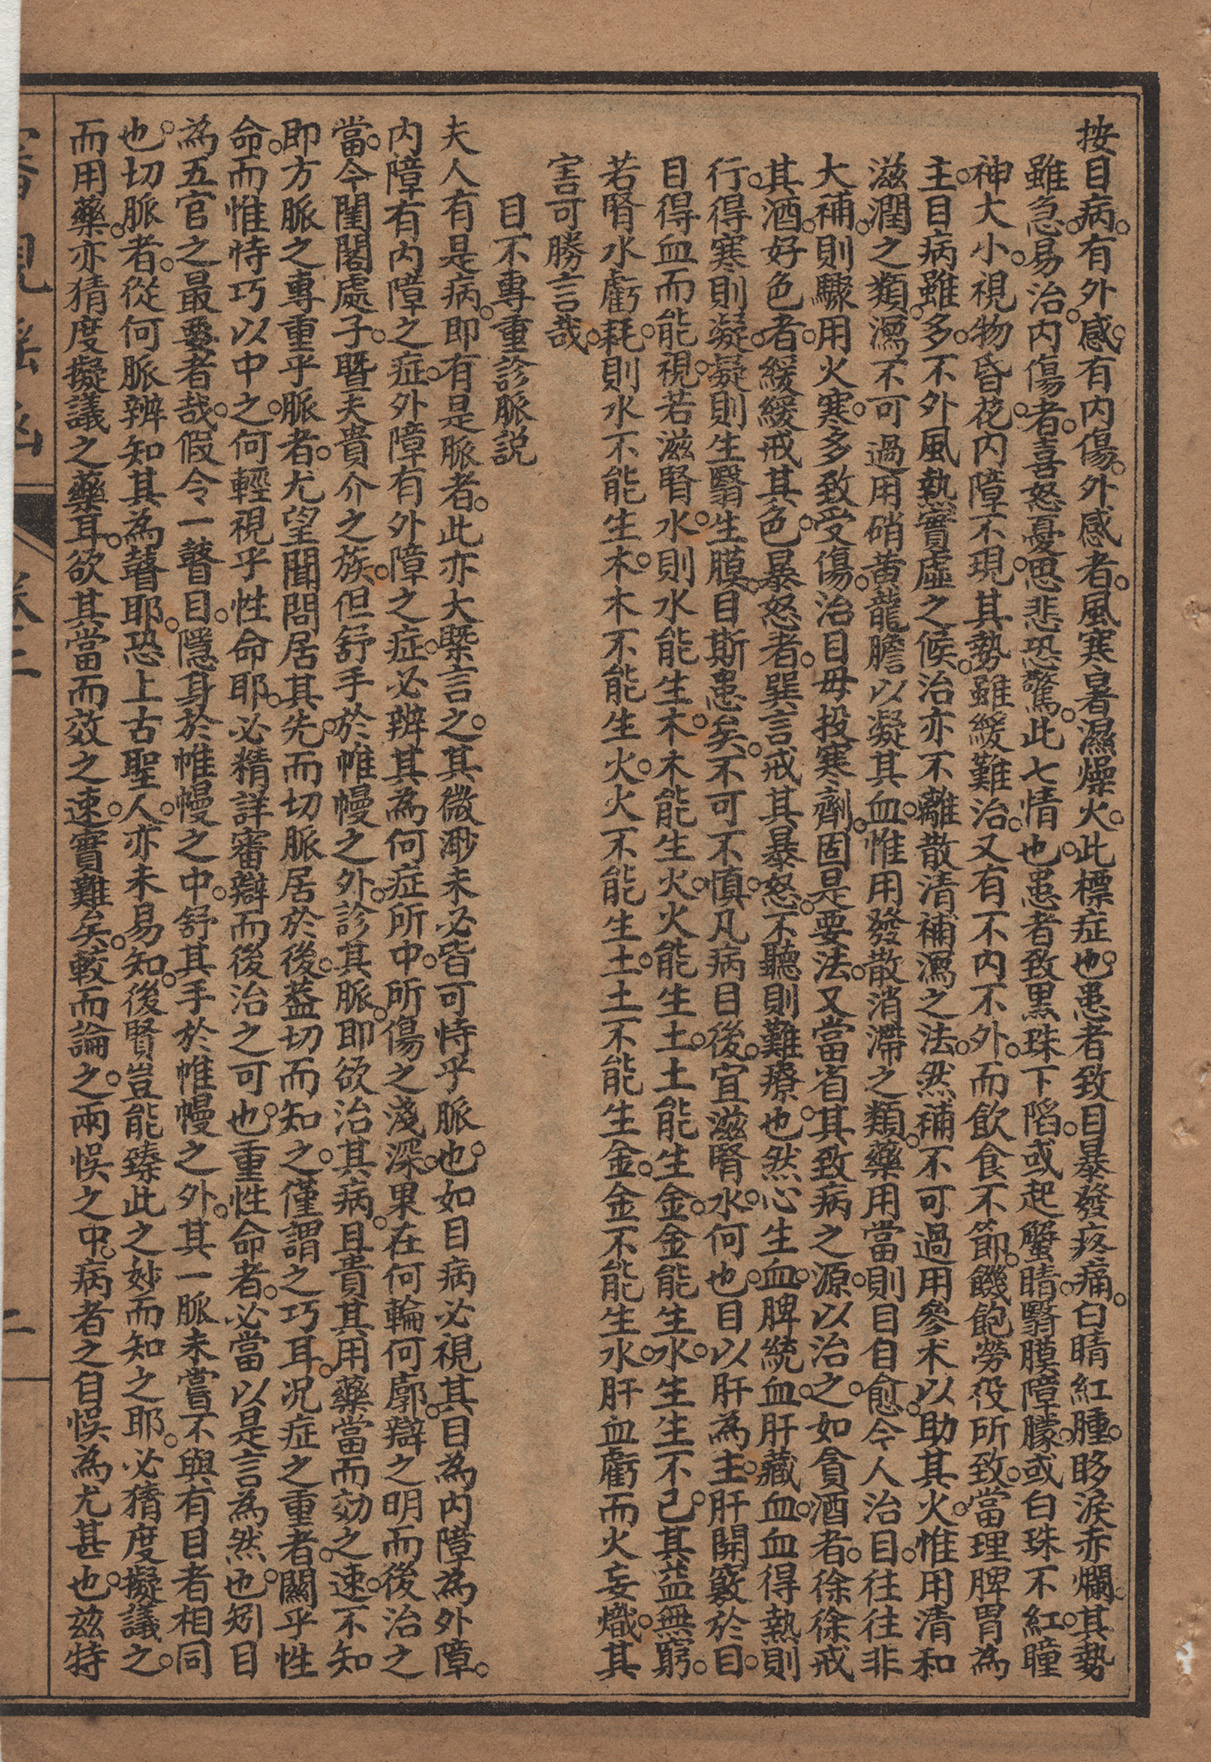 按目病。有外感。有內傷。外感者。風寒暑濕燥火。此標症也。患者致目暴發疼痛。白睛紅腫。眵淚赤爛。其勢
雖急。易治。內傷者。喜怒憂思悲恐驚。此七情也。患者致黑珠下陷。或起蟹睛翳膜障朦。或白珠不紅。瞳
神大小。視物昏花。內障不現。其勢雖緩難治。又有不內不外。而飲食不節。饑飽勞役所致。當理脾胃為
主。目病雖多。不外風熱實虛之候。治亦不離散清補瀉之法。然補不可過用參朮以助其火。惟用清和
滋潤之類。瀉不可過用硝黃龍膽以凝其血。惟用發散消滯之類。藥用當則目自愈。今人治目。往往非
大補。則驟用火寒。多致受傷。治目毋投寒劑。固是要法。又當省其致病之源以治之。如貪酒者。徐徐戒
其酒。好色者。緩緩戒其色。暴怒者。巽言戒其暴怒。不聽則難療也。然心生血。脾統血。肝藏血。血得熱則
行。得寒則凝。凝則生翳生膜。目斯患矣。不可不慎。凡病目後。宜滋腎水。何也。目以肝為主。肝開竅於目。
目得血而能視。若滋腎水。則水能生木。木能生火。火能生土。土能生金。金能生水。生生不已。其益無窮。
若腎水虧耗。則水不能生木。木不能生火。火不能生土。土不能生金。金不能生水。肝血虧而火妄熾。其
害可勝言哉。
目不專重診脈說
夫人有是病。即有是脈者。此亦大槩言之。其微渺未必皆可恃乎脈也。如目病必視其目為內障為外障。
內障有內障之症。外障有外障之症。必辨其為何症所中。所傷之淺深。果在何輪何廓。辯之明而後治之
當。今閨閣處子。暨夫貴介之族。但舒手於帷幔之外。診其脈即欲治其病。且責其用藥當而効之速。不知
即方脈之專重乎脈者。尤望聞問居其先。而切脈居於後。葢切而知之。僅謂之巧耳。況症之重者。關乎性
命。而惟恃巧以中之。何輕視乎性命耶。必精詳審辯而後治之可也。重性命者。必當以是言為然也。矧目
為五官之最要者哉。假令一瞽目。隱身於帷幔之中。舒其手於帷幔之外。其一脈未嘗不與有目者相同
也。切脈者。從何脈辨知其為瞽耶。恐上古聖人。亦未易知。後賢豈能臻此之妙而知之耶。必猜度擬議之。
而用藥。亦猜度擬議之藥耳。欲其當而效之速。實難矣。較而論之。兩悞之中。病者之自悞為尤甚也。茲特